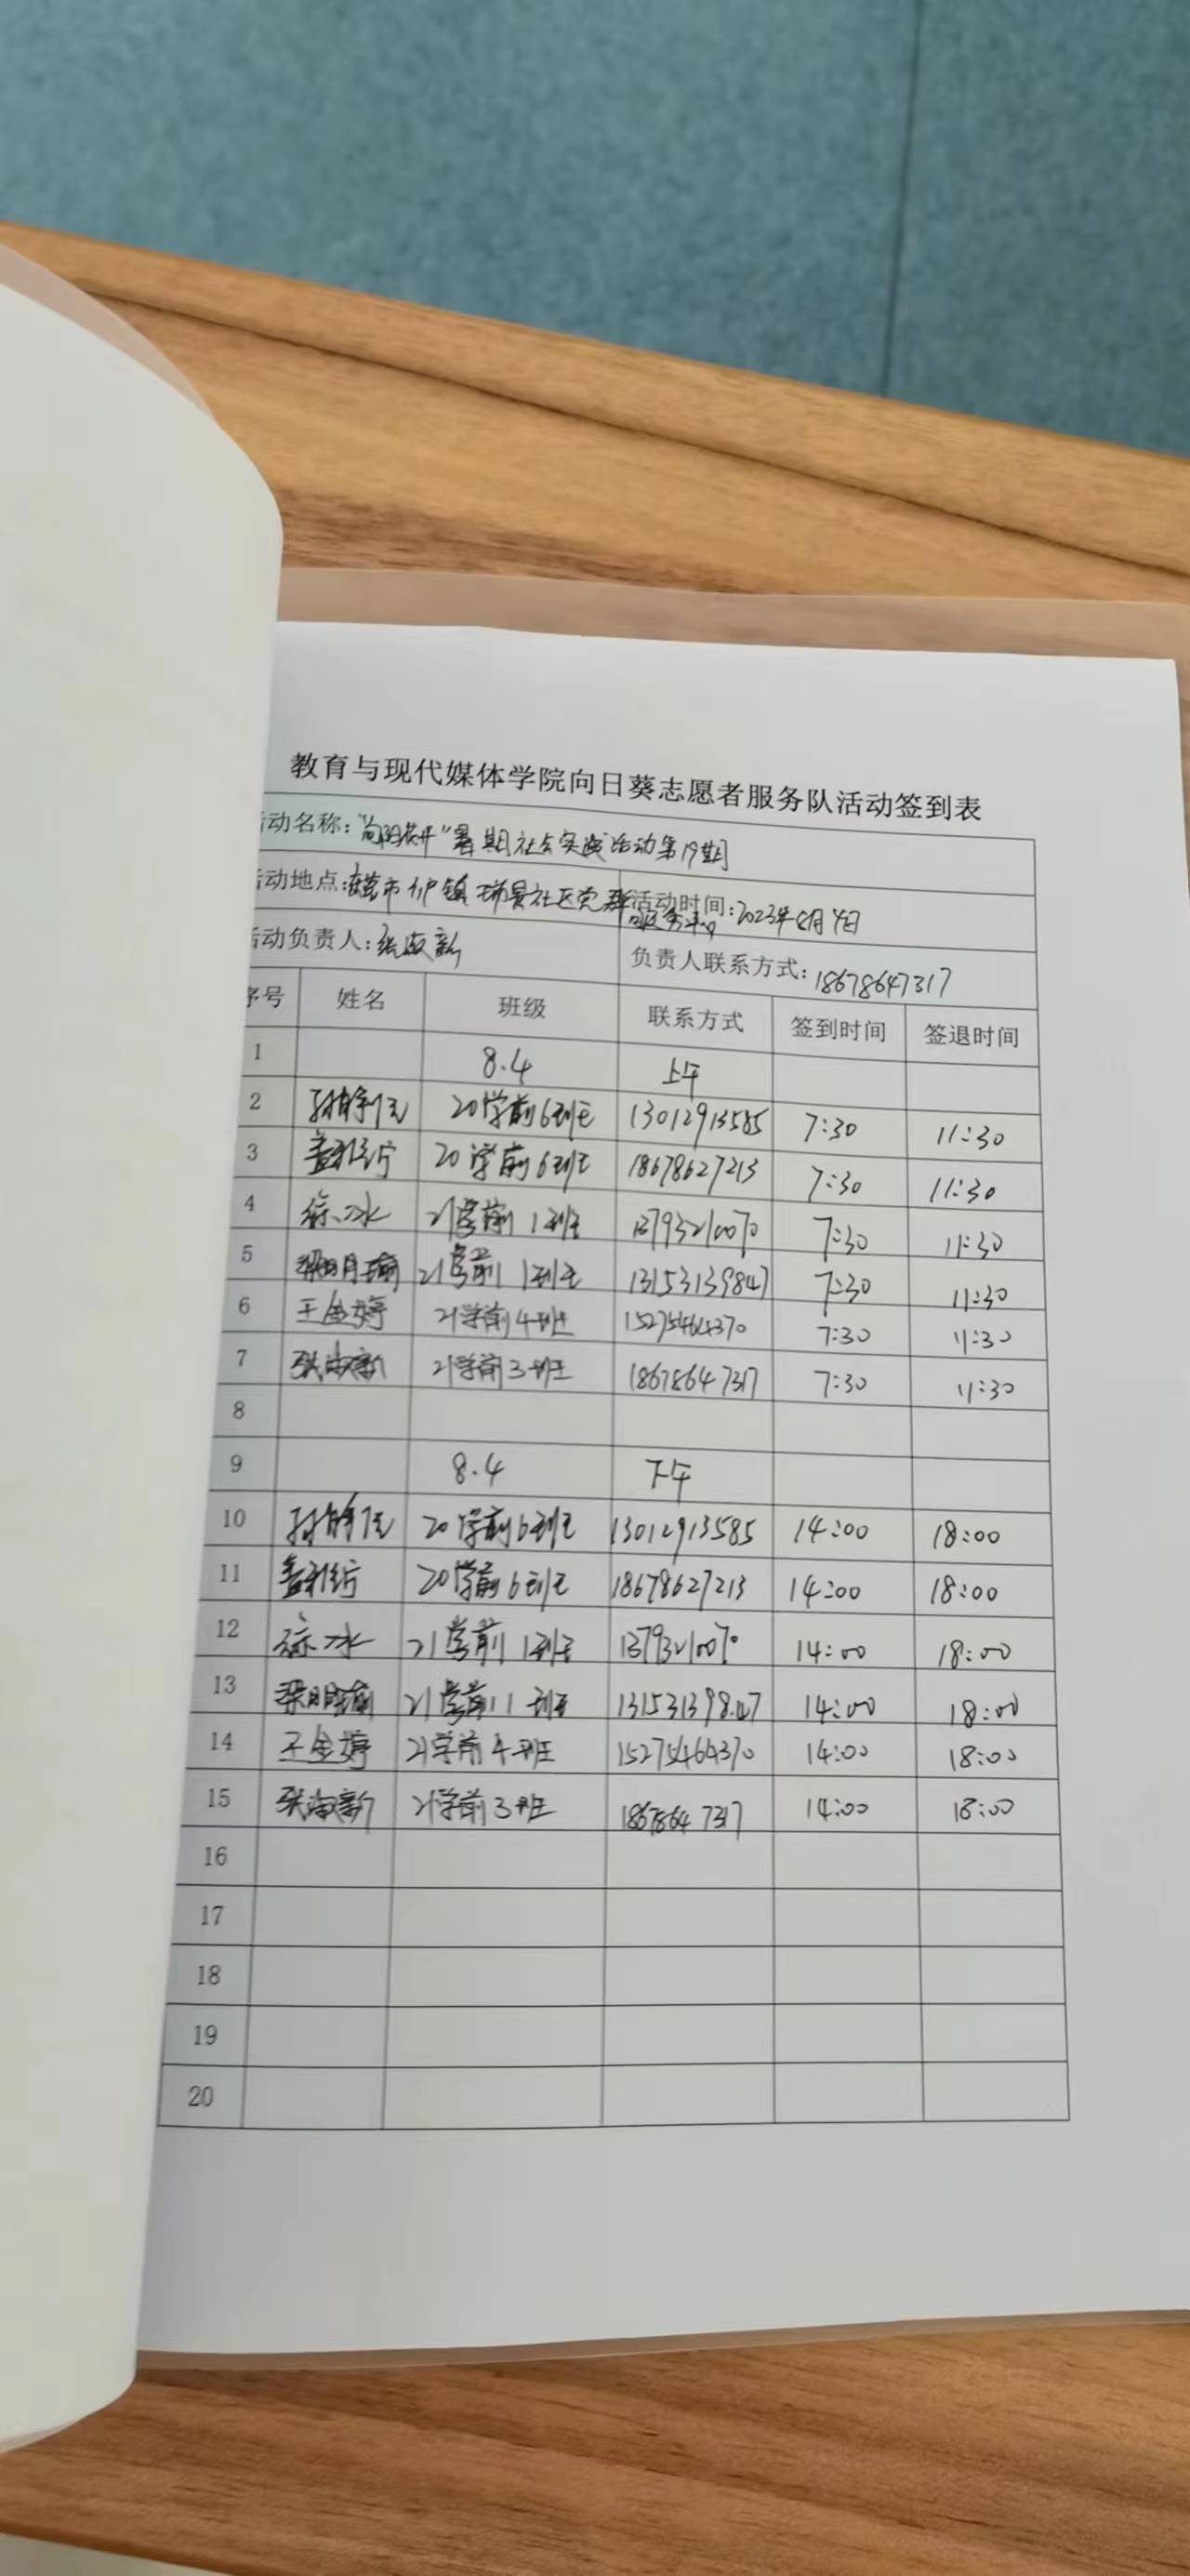 教育与现代媒体学院向日葵志愿者服务队活动签到表
活动名称："向阳花开"暑期社会实践活动第19期
活动地点： 市 镇 社区党群服务中心 活动时间：2023年8月4日
活动负责人：张淑新 负责人联系方式：18678647317
序号 姓名 班级 联系方式 签到时间 签退时间
1 8.4 上午
2 20学前6班 13012913585 7:30 11:30
3 20学前6班 18678627213 7:30 11:30
4 徐冰 21学前1班 13793210070 7:30 11:30
5 梁明月 21学前1班 13153139847 7:30 11:30
6 王金婷 21学前4班 15275464370 7:30 11:30
7 张淑新 21学前3班 18678647317 7:30 11:30
8
9 8.4 下午
10 20学前6班 13012913585 14:00 18:00
11 20学前6班 18678627213 14:00 18:00
12 徐冰 21学前1班 14:00 18:00
13 21学前1班 13153139847 14:00 18:00
14 王金婷 21学前4班 15275464370 14:00 18:00
15 张淑新 21学前3班 18678647317 14:00 18:00
16
17
18
19
20